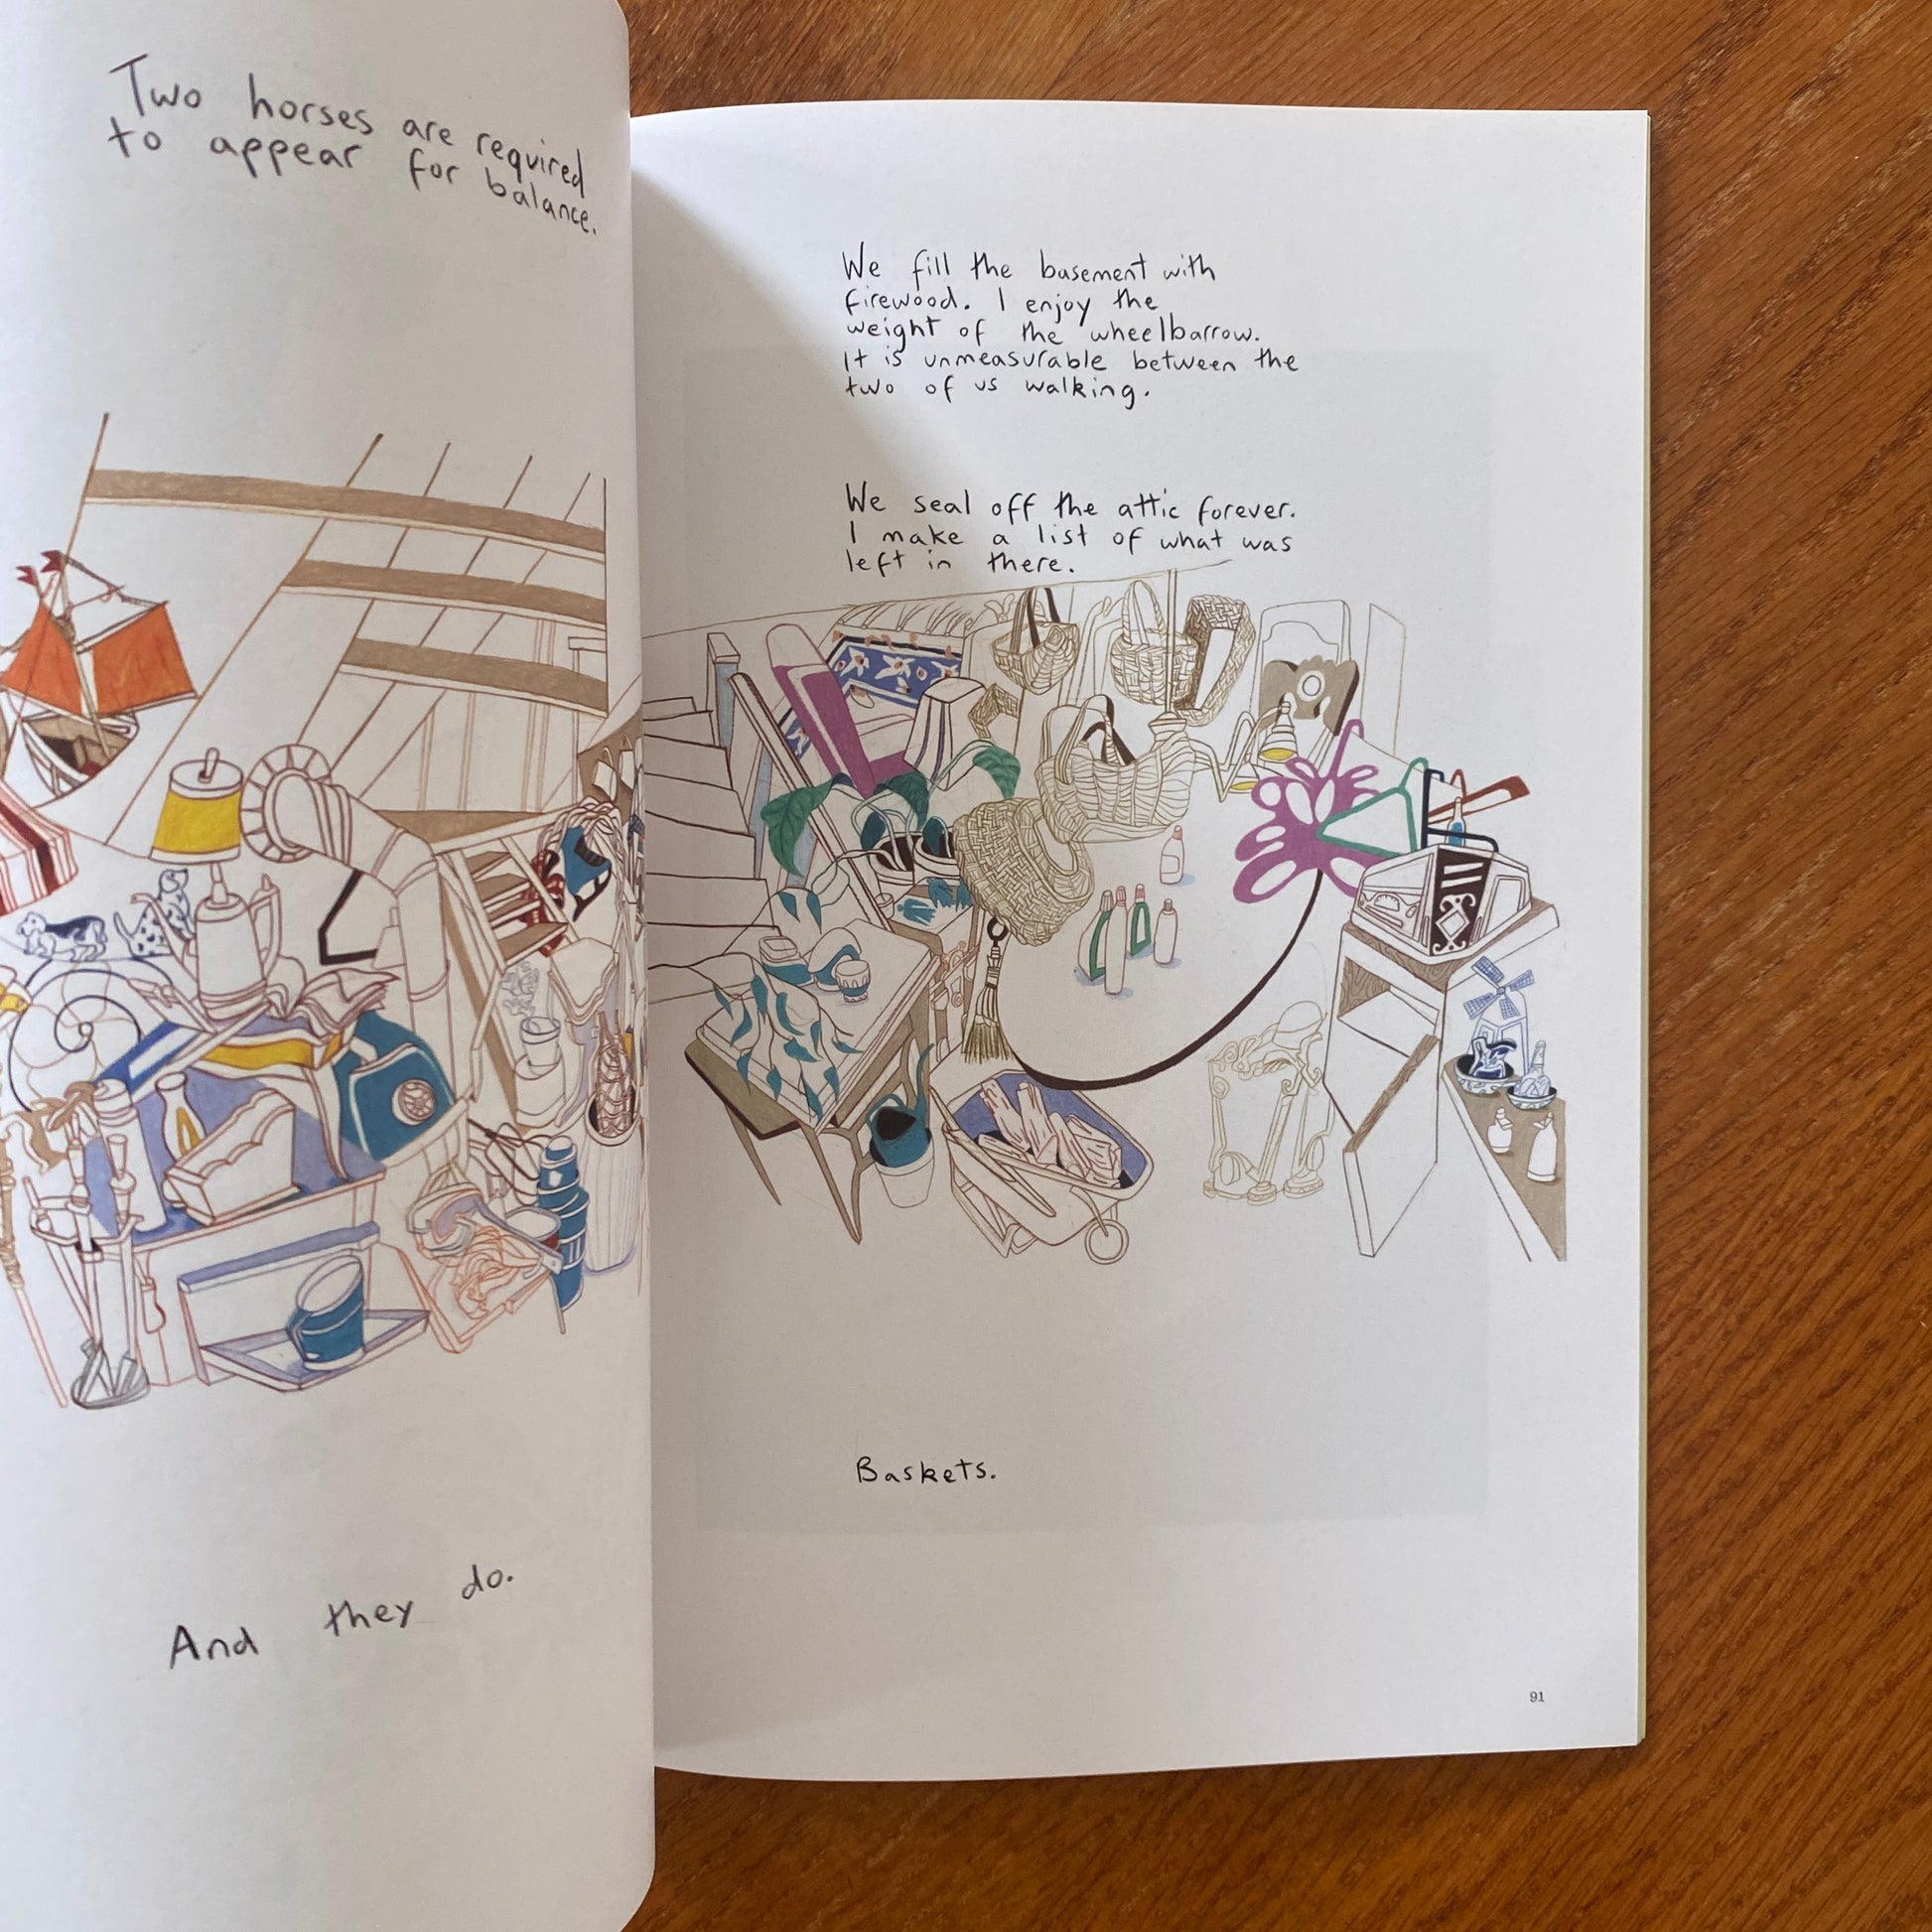 Two horses are required
to appear for balance.
And they do.
We fill the basement with
firewood. I enjoy the
weight of the wheelbarrow.
It is unmeasurable between the
two of us walking.
We seal off the attic forever.
I make a list of what was
left in there.
Baskets.
91